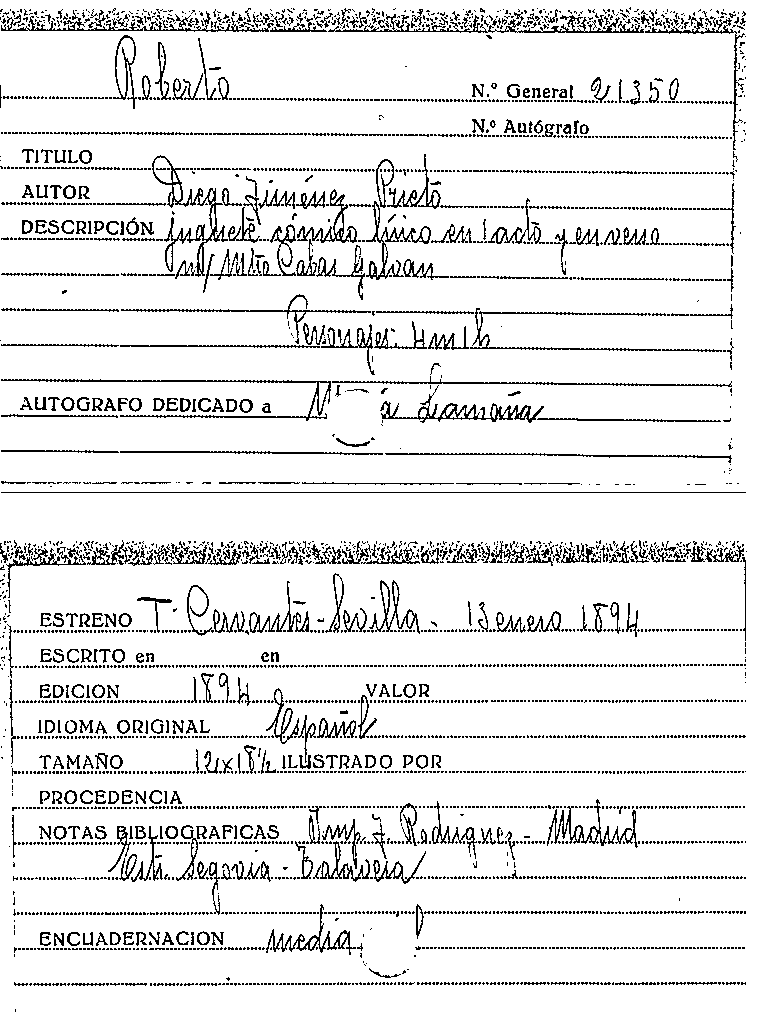 Roberto
N.º General 21350
N.º Autógrafo
TITULO
AUTOR Diego Jiménez Prieto
DESCRIPCIÓN juguete cómico lírico en 1 acto y en verso
Mtro Cabas Galvan
Personajes: 4m 1h
AUTOGRAFO DEDICADO a Lamaña
ESTRENO T. Cervantes - Sevilla - 13 enero 1894
ESCRITO en en
EDICION 1894 VALOR
IDIOMA ORIGINAL Español
TAMAÑO 12x18½ ILUSTRADO POR
PROCEDENCIA
NOTAS BIBLIOGRAFICAS Imp. J. Rodriguez - Madrid
Estr. Segovia - Talavera
ENCUADERNACION media